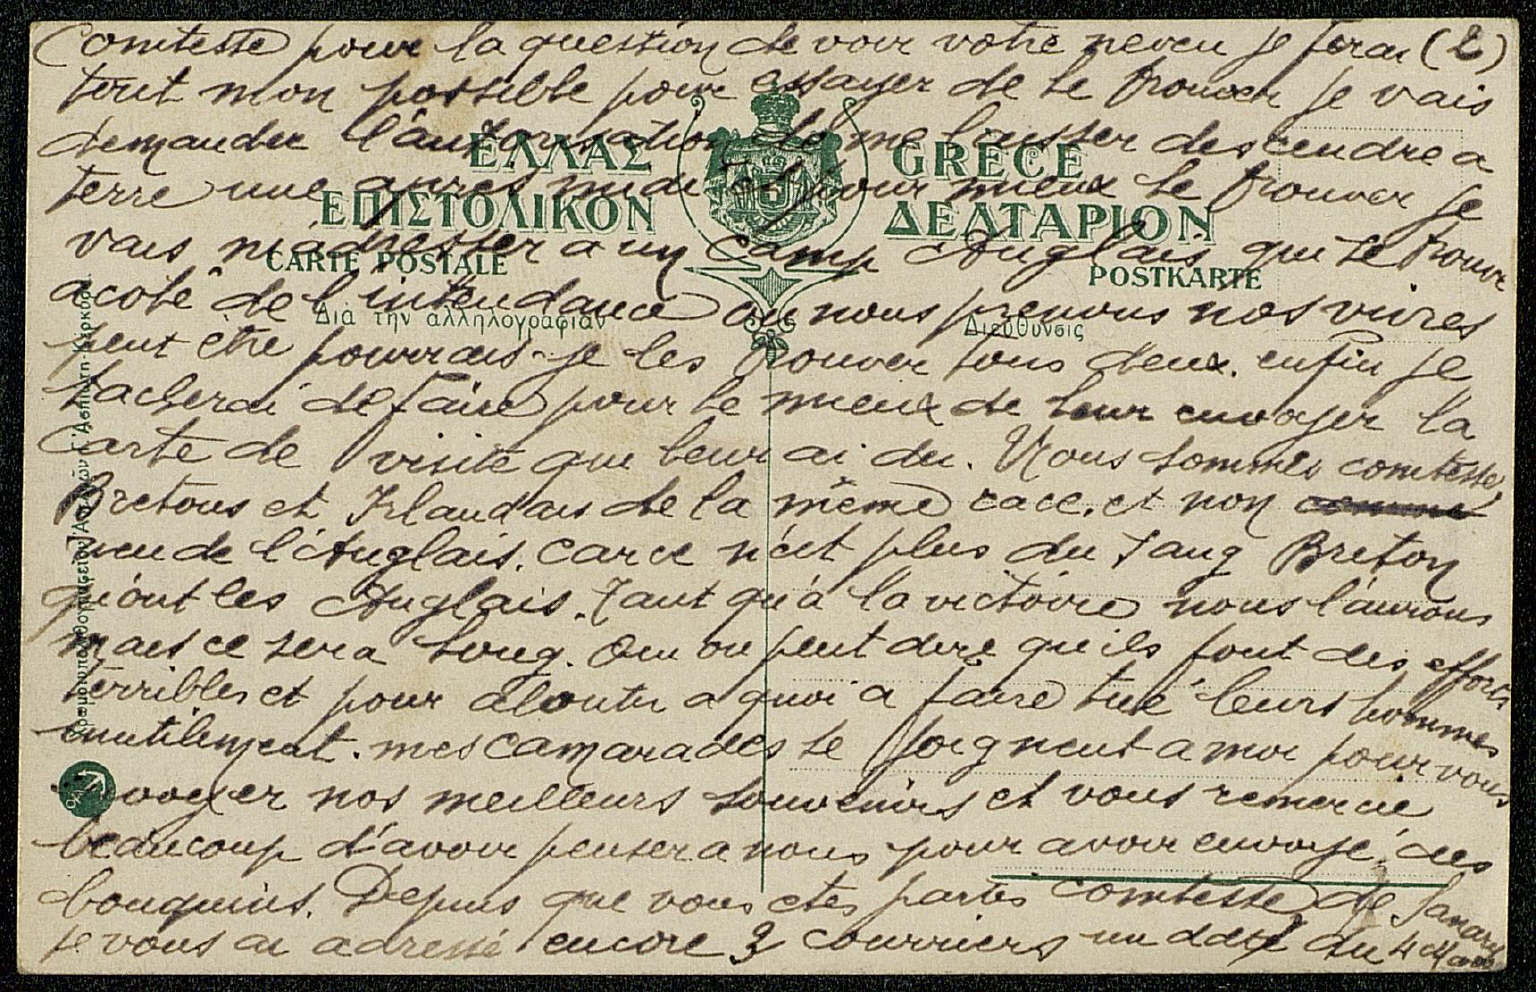 Comtesse pour la question de voir votre neveu je ferai (2)
tout mon possible pour essayer de le trouver je vais
demander l'autorisation de me laisser descendre a
terre une apres midi pour mieux le trouver je
vais m'adresser a un camp Anglais qui se trouve
a coté de l'intendance ou nous prenons nos vivres
peut etre pourrais-je les trouver tous deux. enfin je
tacherai de faire pour le mieux de leur envoyer la
carte de visite que leur ai du. Nous sommes comtesse
Bretons et Irlandais de la même race. et non
de l'Anglais. car ce n'est plus du sang Breton
qu'ont les Anglais. Tant qu'a la victoire nous l'aurons
mais ce sera long. Oui on peut dire qu'ils font des efforts
terribles et pour aloutir a quoi a faire tué leurs hommes
inutilement. mes camarades se joignent a moi pour vous
envoyer nos meilleurs souvenirs et vous remercie
beaucoup d'avoir penser a nous pour avoir envoyé des
bouquins. Depuis que vous etes partis comtesse de Sanary
je vous ai adressé encore 3 courriers un daté du 4
ΕΛΛΑΣ GRÈCE
ΕΠΙΣΤΟΛΙΚΟΝ ΔΕΛΤΑΡΙΟΝ
CARTE POSTALE POSTKARTE
Διὰ τὴν ἀλληλογραφίαν Διεύθυνσις